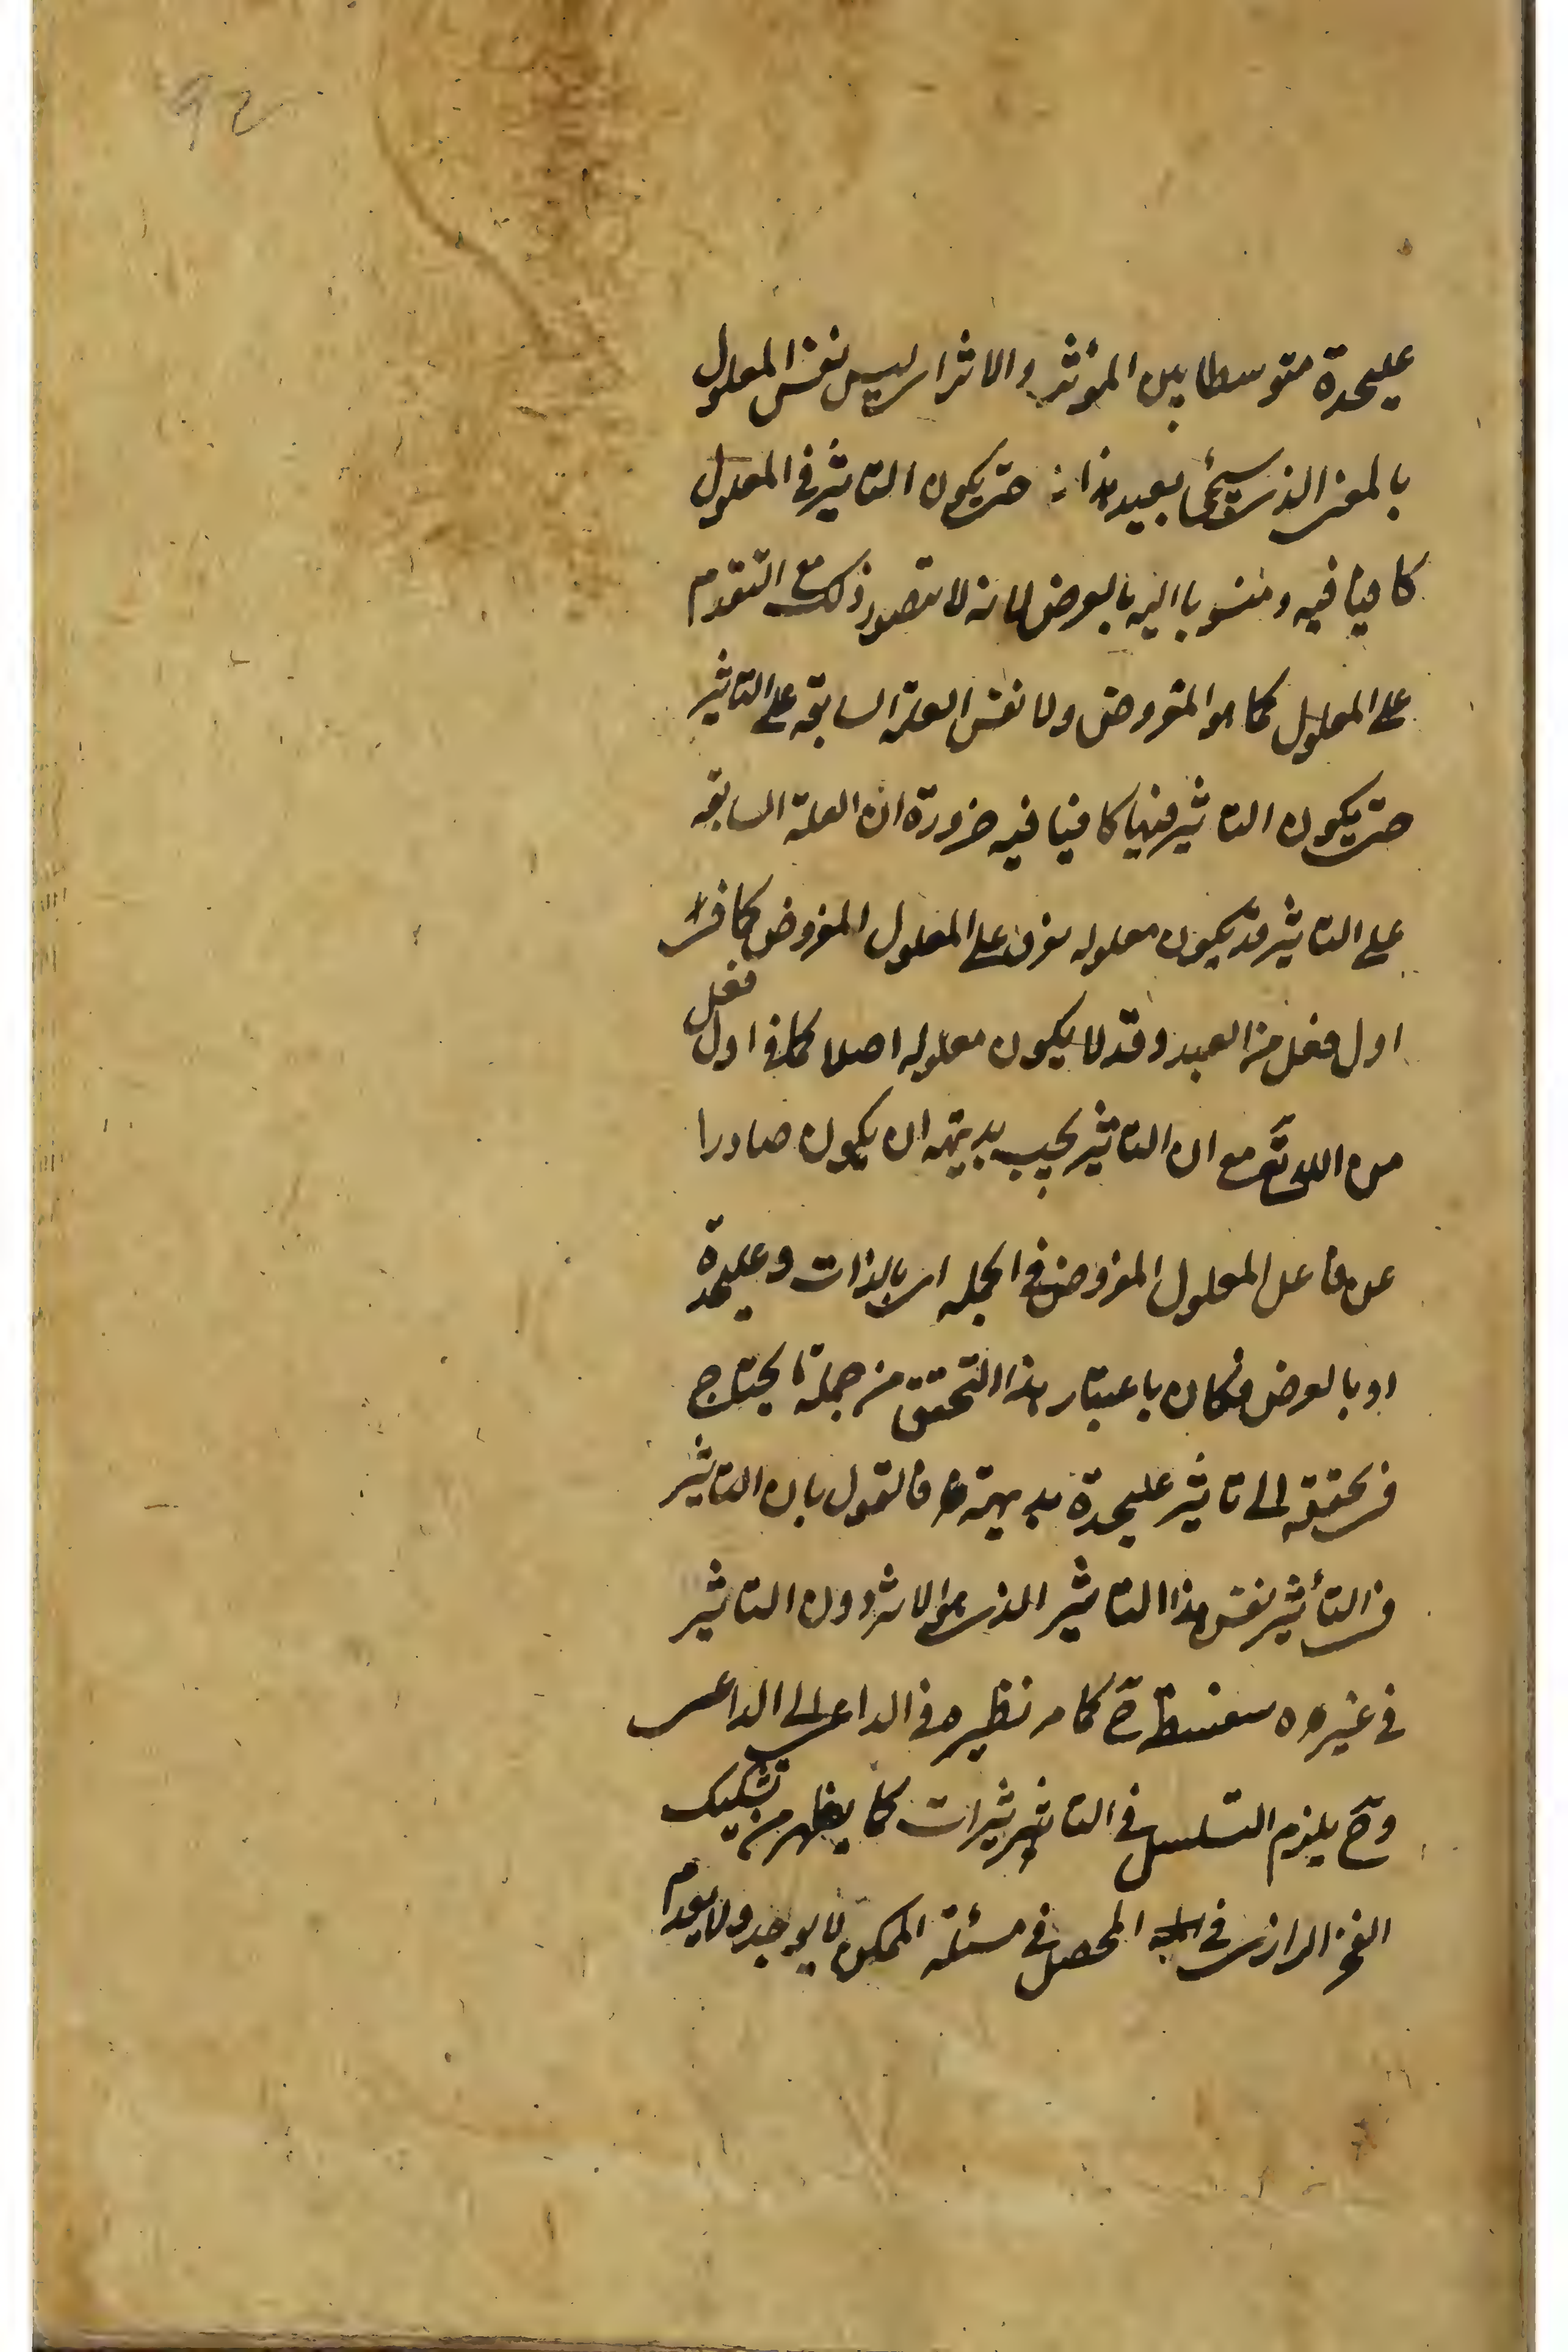 92
عليحدة متوسطا بين المؤثر والاثر اى ليس نفس المعلول
بالمعنى الذى سيجئ بعيد هذا حتى يكون التاثير فى المعلول
كافيا فيه ومنسوبا اليه بالعرض لانه لا يتصور ذلك مع التقدم
على المعلول كما هو المفروض ولا نفس العلة السابقه على التاثير
حتى يكون التاثير فيها كافيا فيه ضرورة ان العلة السابقه
على التاثير قد يكون معلوله على المعلول المفروض كما فى
اول فعل من العبد وقد لا يكون معلوله اصلا كما فى اول فعل
من الله تع مع ان التاثير يجب بديهة ان يكون صادرا
عن فاعل المعلول المفروض فى الجمله اى بالذات وعليحدة
او بالعرض فكان باعتبار هذا التحقق من جملة ما يحتاج
فى تحققه الى تاثير عليحدة بديهة فالقول بان التاثير
فى التأثير نفس هذا التاثير الذى هو الاثر دون التاثير
فى غيره سفسطة ح كما مر نظيره فى الداعى الى الداعى
وح يلزم التسلسل فى التاثيرات كما يظهر من تشكيك
الفخر الرازى فى المحصل فى مسئلة الممكن لا يوجد ولا يعدم